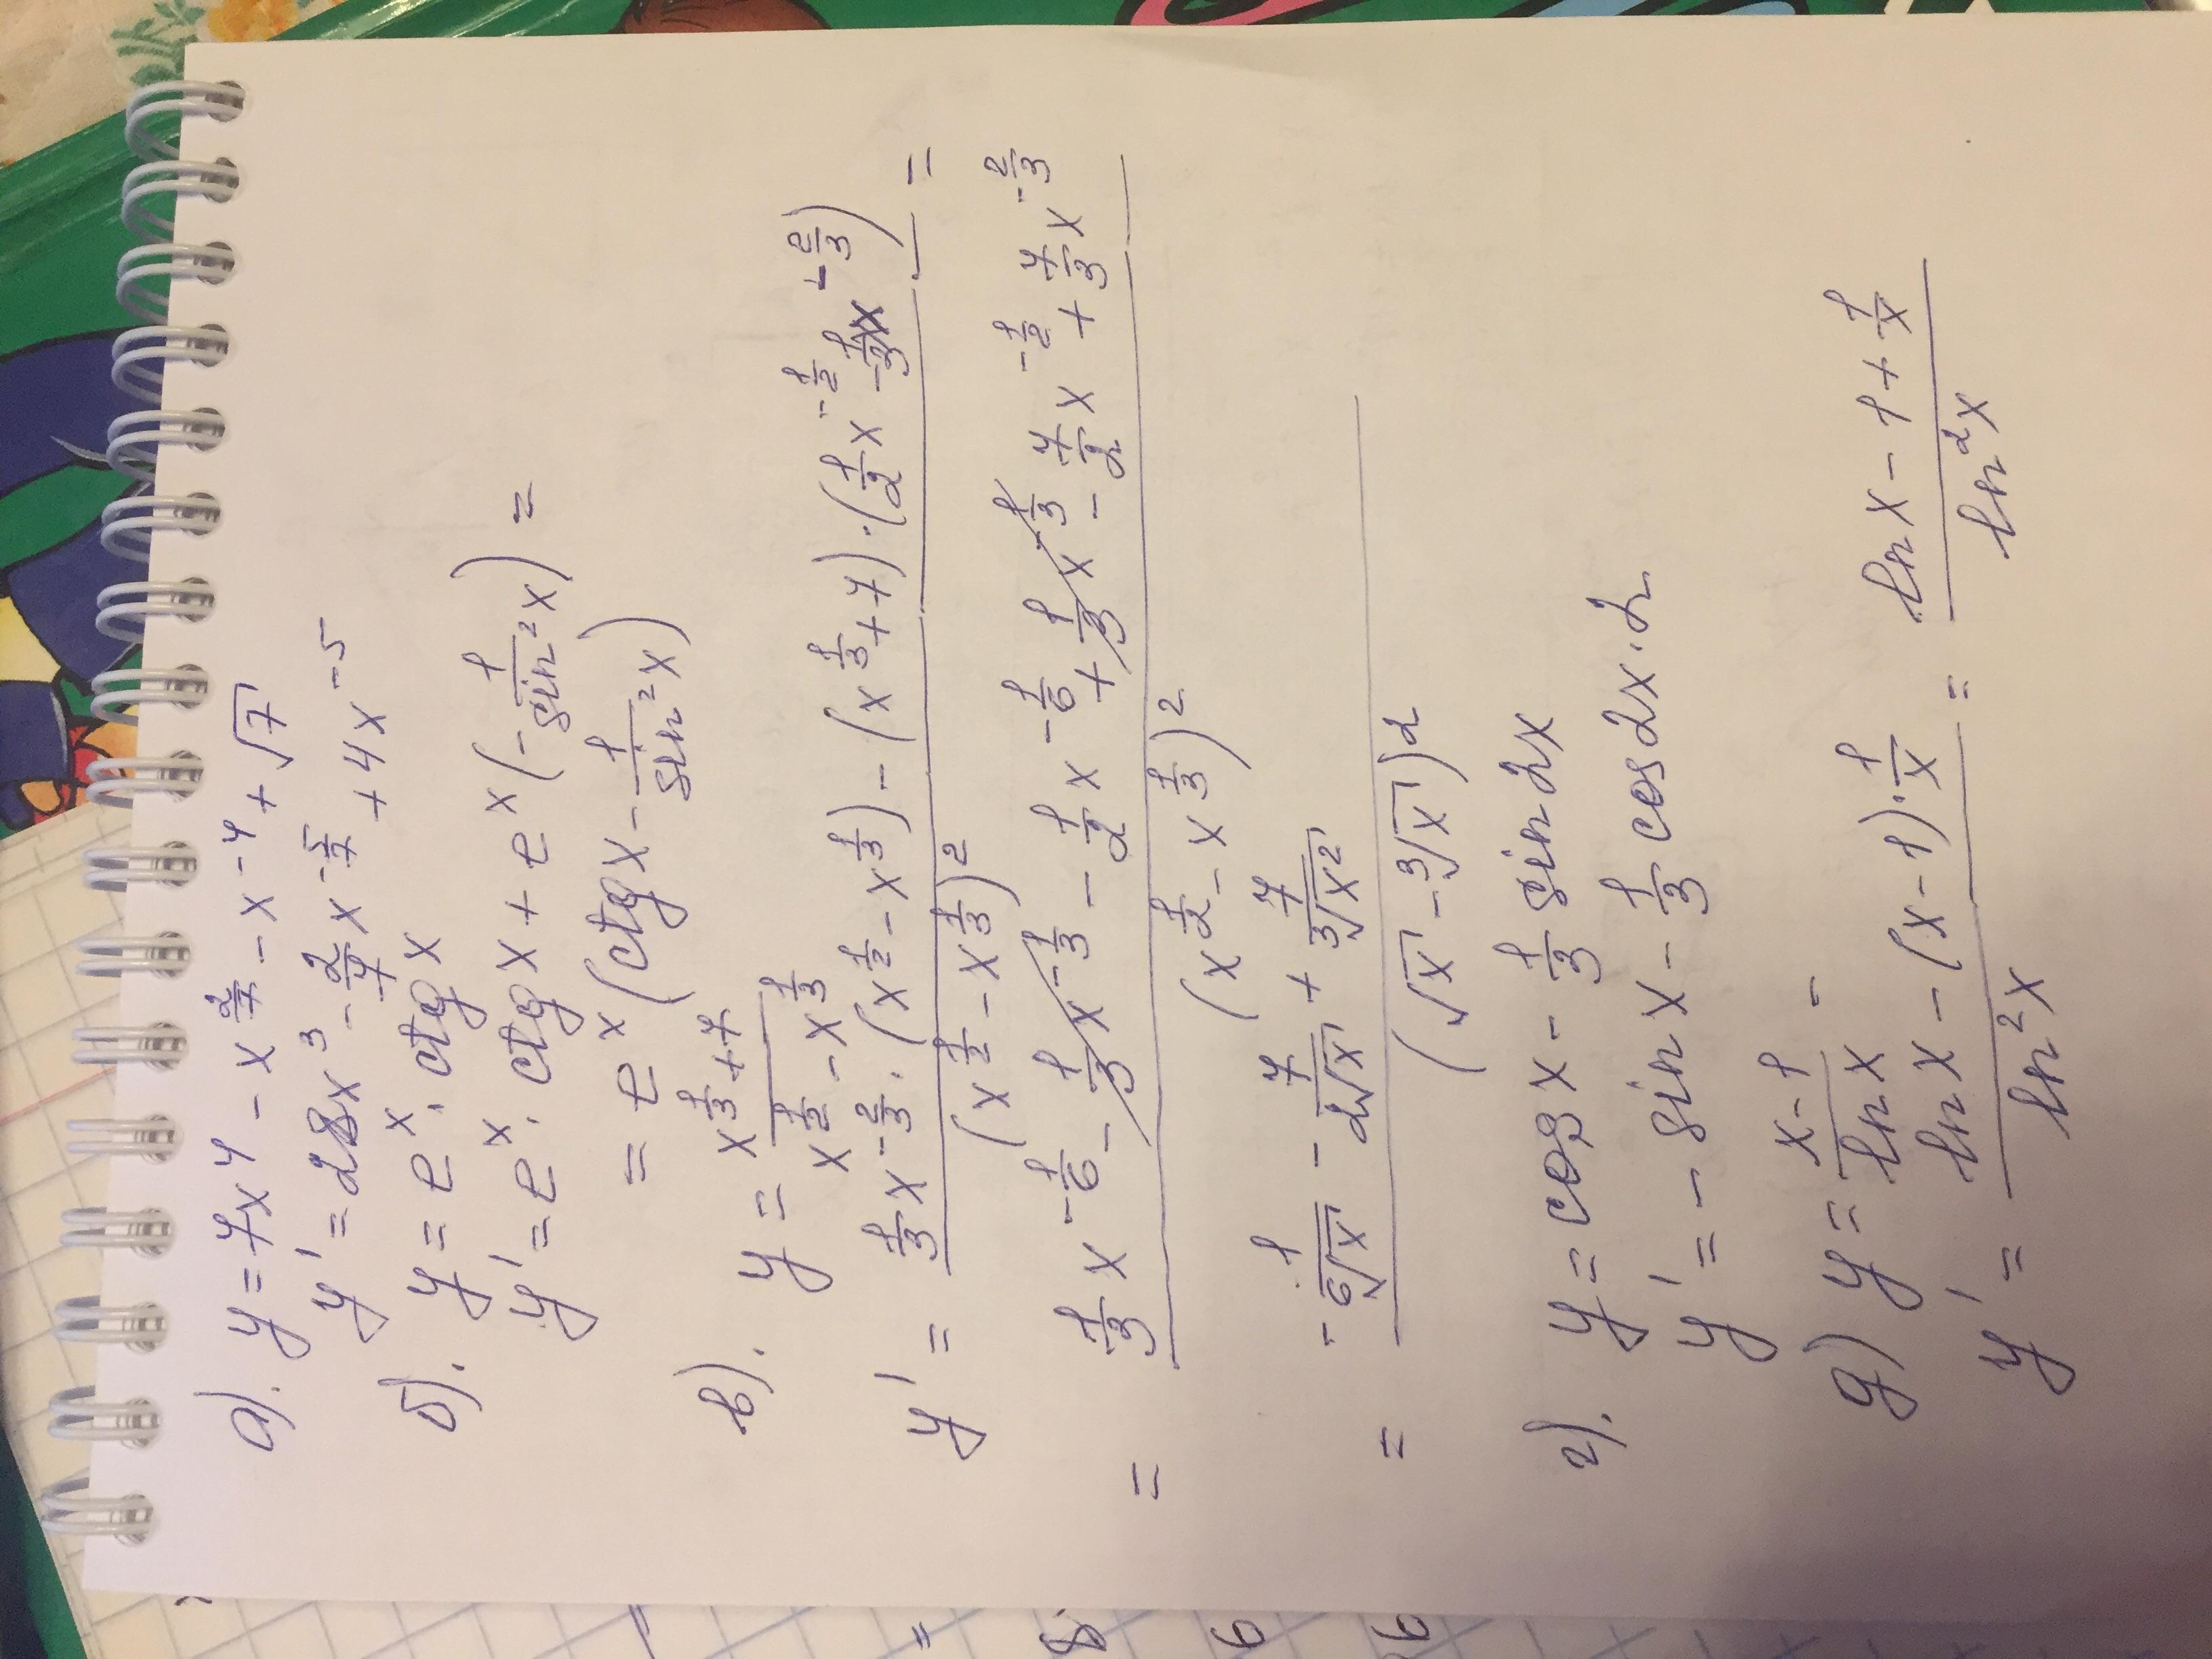 а). y = 7x⁴ - x^(2/7) - x⁻⁴ + √7
y' = 28x³ - 2/7 x^(-5/7) + 4x⁻⁵
б). y = eˣ · ctg x
y' = eˣ · ctg x + eˣ (- 1/sin²x) =
= eˣ (ctg x - 1/sin²x)
в). y = (x^(1/3) + 7)/(x^(1/2) - x^(1/3))
y' = (1/3 x^(-2/3) · (x^(1/2) - x^(1/3)) - (x^(1/3) + 7) · (1/2 x^(-1/2) - 1/3 x^(-2/3)))/(x^(1/2) - x^(1/3))² =
= (1/3 x^(-1/6) - 1/3 x^(-1/3) - 1/2 x^(-1/6) + 1/3 x^(-1/3) - 7/2 x^(-1/2) + 7/3 x^(-2/3))/(x^(1/2) - x^(1/3))²
= (- 1/⁶√x - 7/2√x + 7/³√x²)/(√x - ³√x)²
г). y = cos x - 1/3 sin 2x
y' = - sin x - 1/3 cos 2x · 2
д) y = (x - 1)/ln x -
y' = (ln x - (x - 1) · 1/x)/ln²x = (ln x - 1 + 1/x)/ln²x